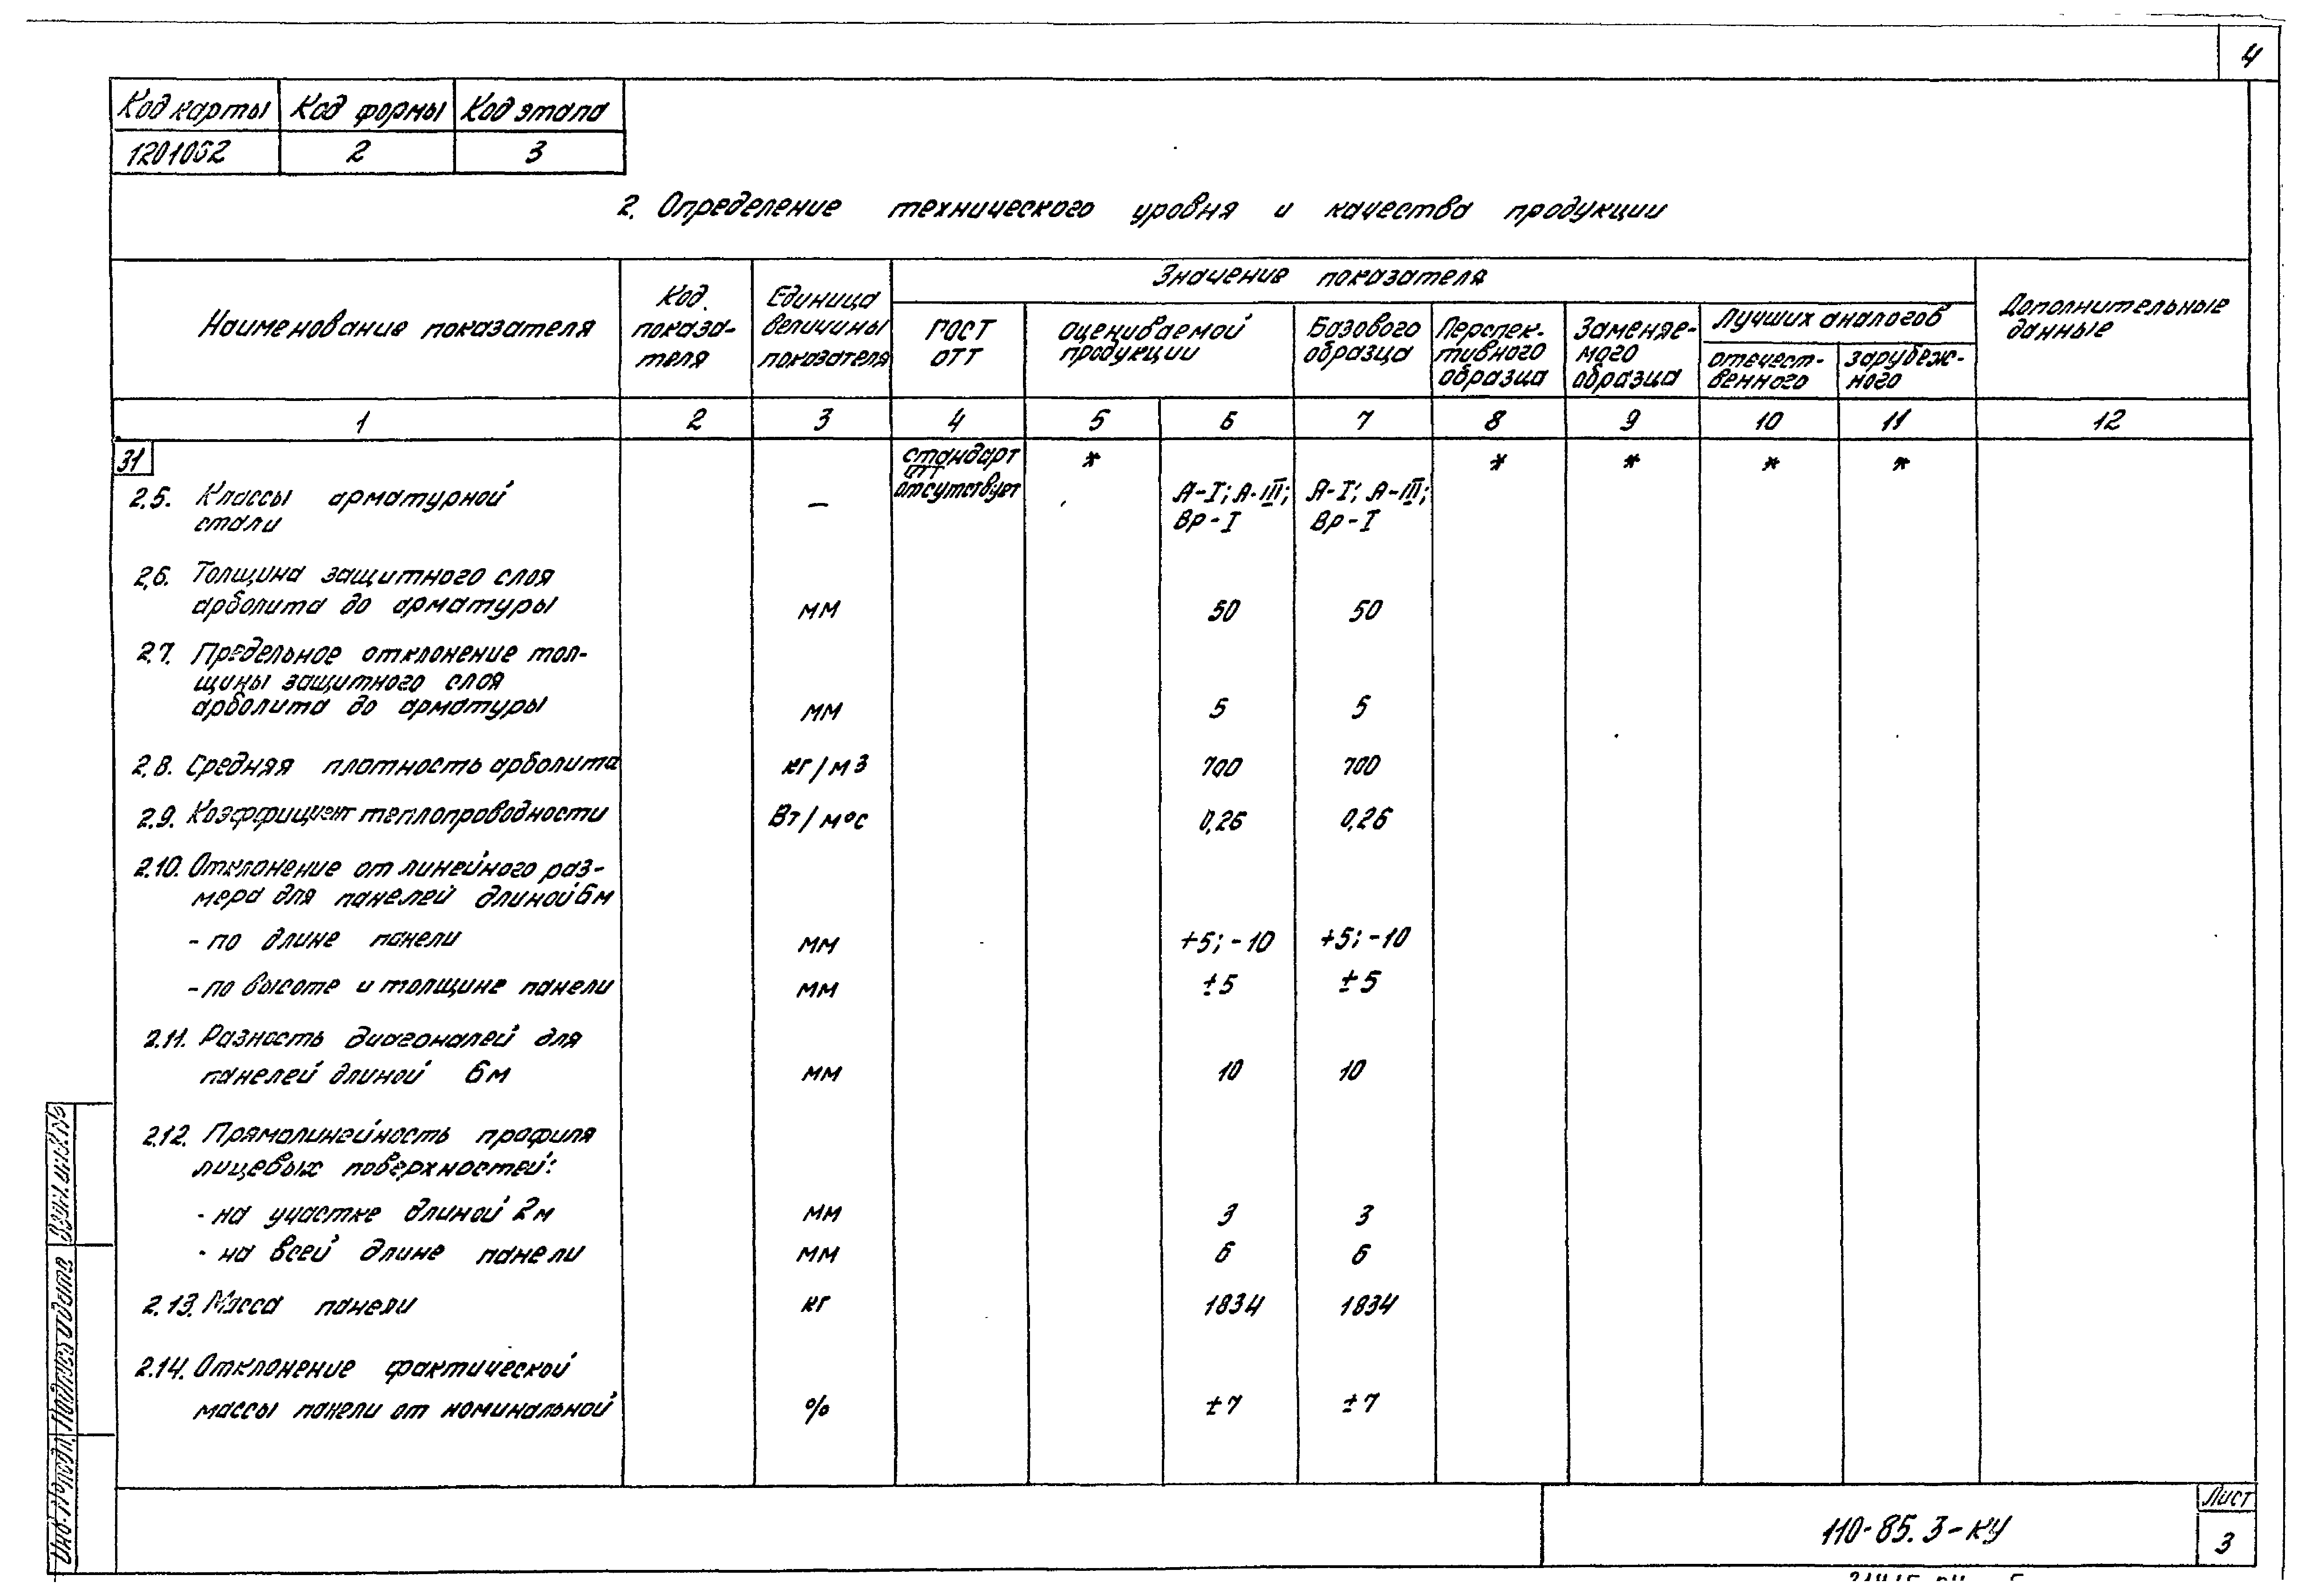 4
Код карты Код формы Код этапа
1201052 2 3
2. Определение технического уровня и качества продукции
Наименование показателя
Код показа-
теля
Единица
величины
показателя
Значение показателя
ГОСТ
ОТТ
оцениваемой
продукции
Базового
образца
Перспек-
тивного
образца
Заменяе-
мого
образца
Лучших аналогов
отечест-
венного
зарубеж-
ного
Дополнительные
данные
1 2 3 4 5 6 7 8 9 10 11 12
31
стандарт
ОТТ
отсутствует
* * * * *
2.5. Классы арматурной
стали
— А-I; А-III; А-I; А-III;
Вр-I Вр-I
2.6. Толщина защитного слоя
арболита до арматуры мм 50 50
2.7. Предельное отклонение тол-
щины защитного слоя
арболита до арматуры мм 5 5
2.8. Средняя плотность арболита кг/м3 700 700
2.9. Коэффициент теплопроводности Вт/м°с 0,26 0,26
2.10. Отклонение от линейного раз-
мера для панелей длиной 6м
- по длине панели мм +5; -10 +5; -10
- по высоте и толщине панели мм ±5 ±5
2.11. Разность диагоналей для
панелей длиной 6м мм 10 10
2.12. Прямолинейность профиля
лицевых поверхностей:
- на участке длиной 2м мм 3 3
- на всей длине панели мм 6 6
2.13. Масса панели кг 1834 1834
2.14. Отклонение фактической
массы панели от номинальной % ±7 ±7
Инв.№подл. Подпись и дата Взам.инв.№
110-85.3-КУ
Лист
3